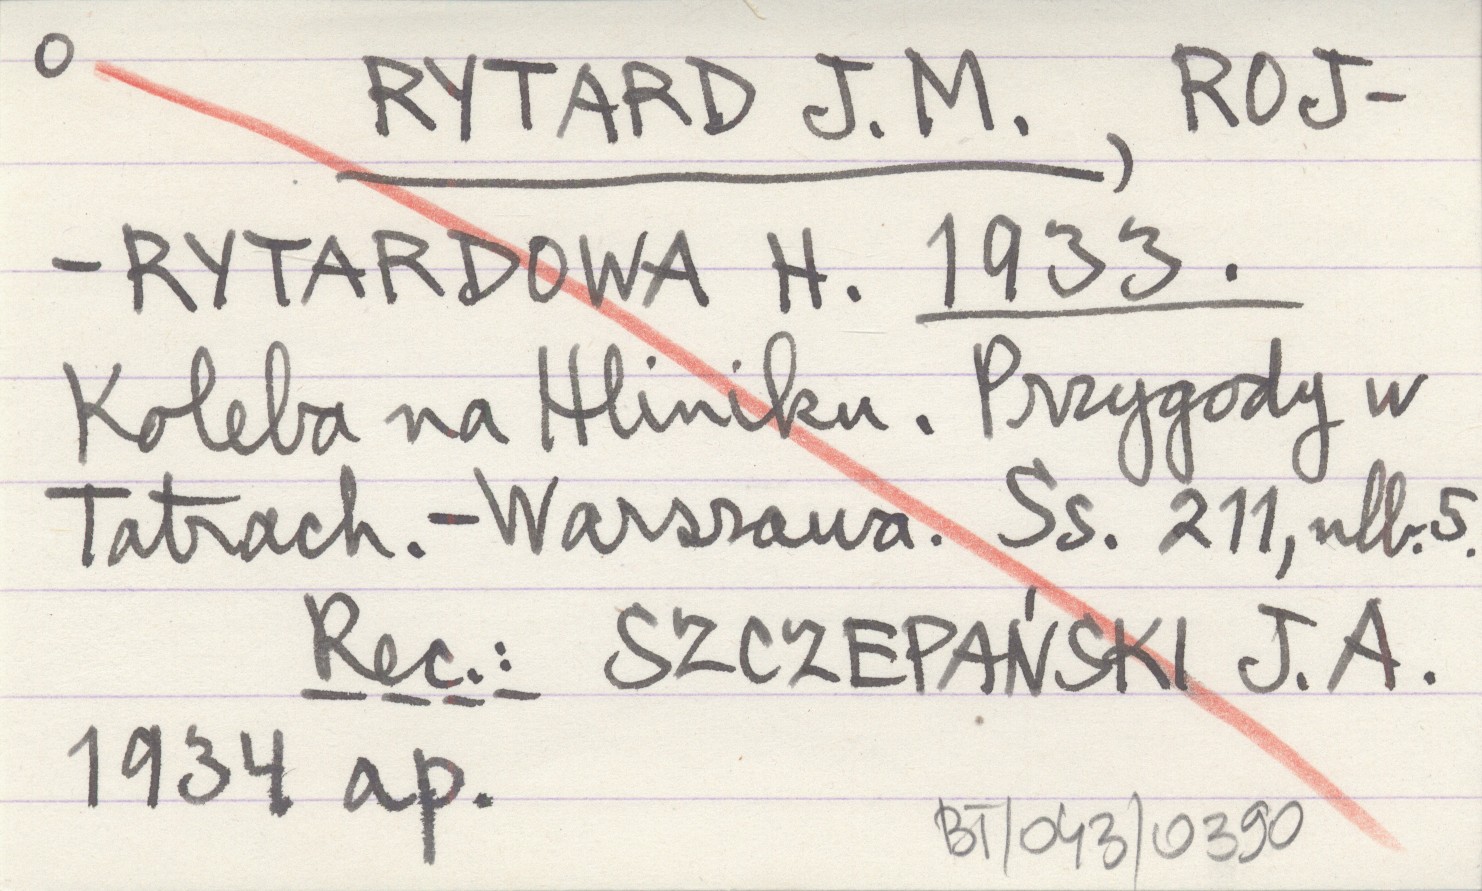 O
RYTARD J. M., ROJ-
-RYTARDOWA H. 1933.
Koleba na Hliniku. Przygody w
Tatrach. - Warszawa. Ss. 211, nlb. 5.
Rec.: SZCZEPAŃSKI J. A.
1934 ap.
BT/043/0390